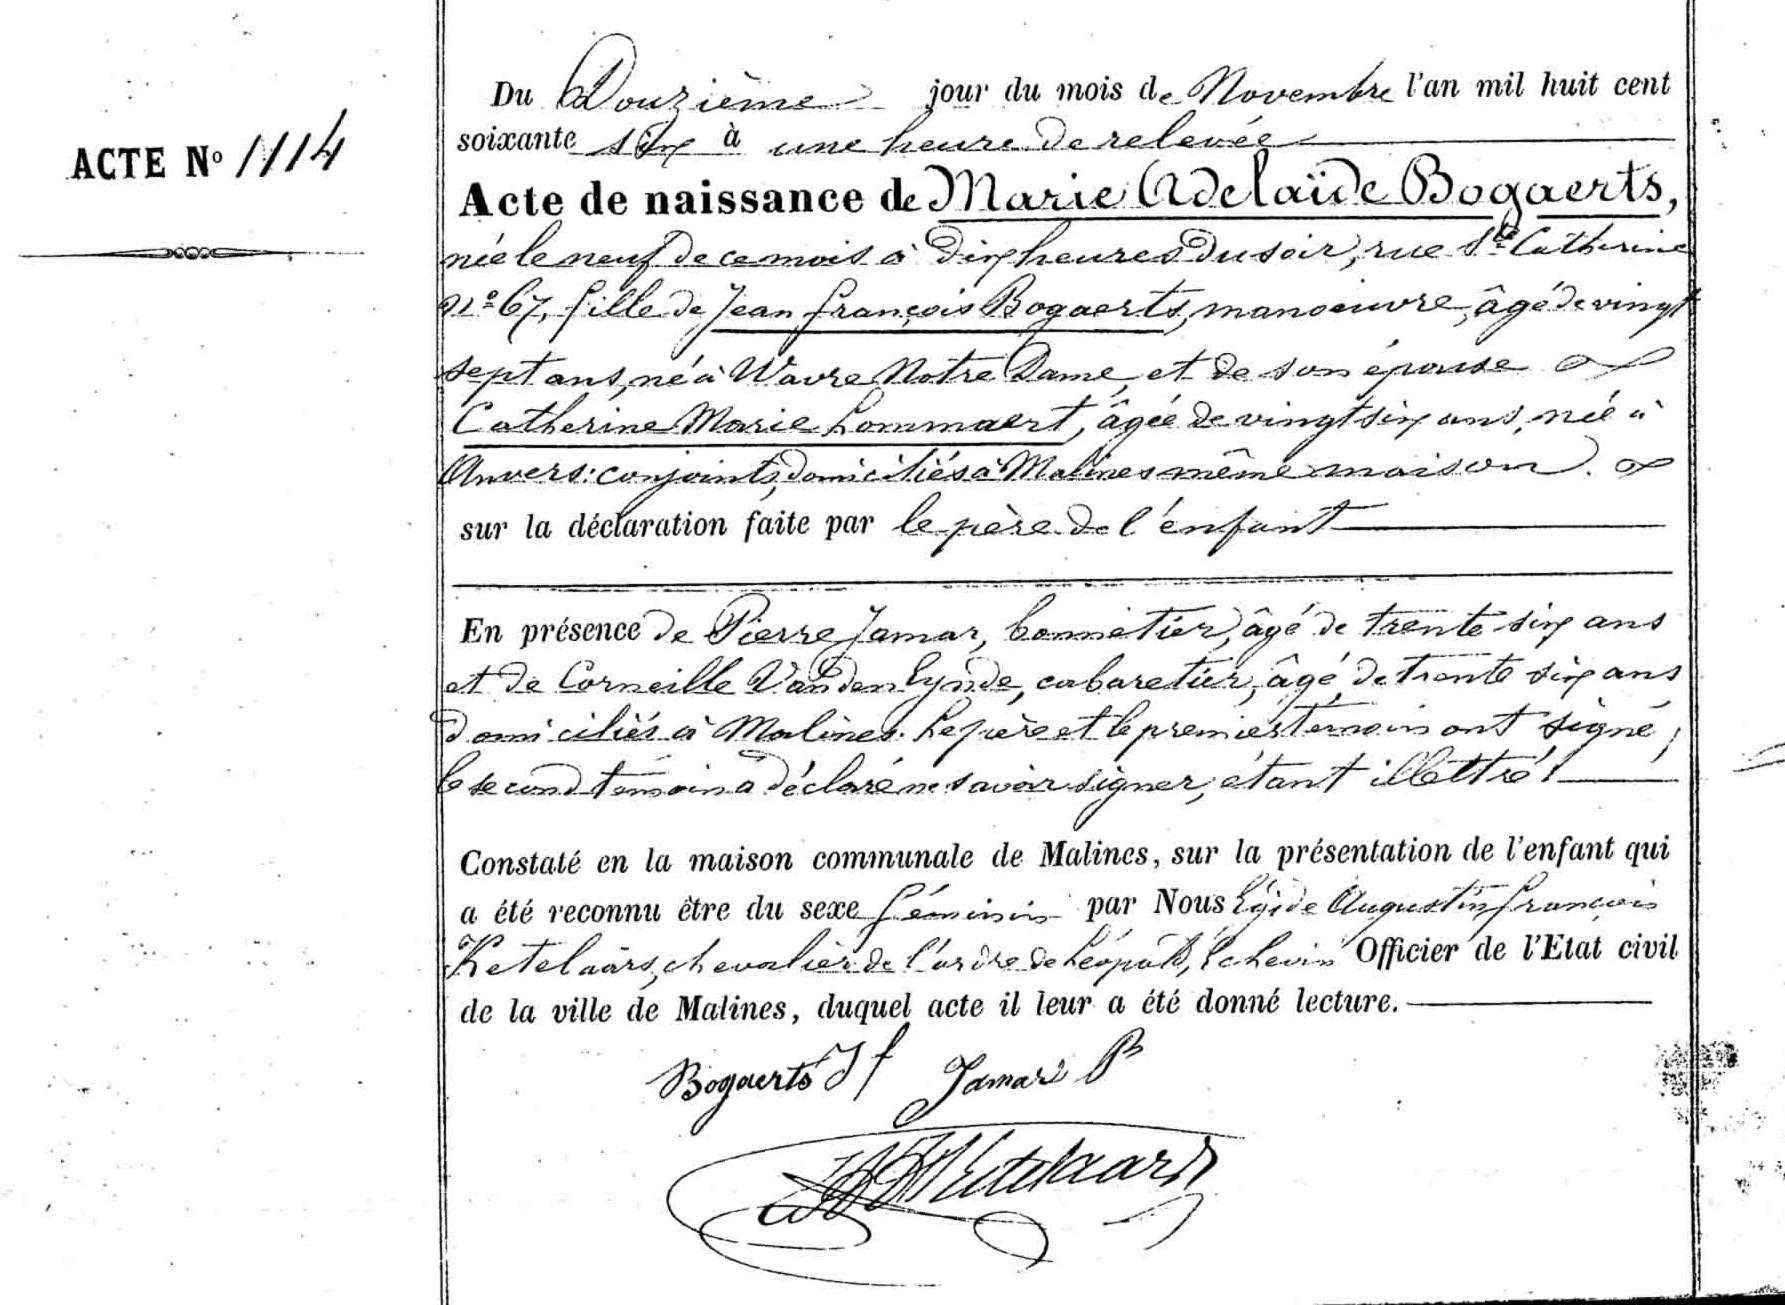 ACTE Nº 1114
Du Douzième jour du mois de Novembre l'an mil huit cent
soixante six à une heure de relevée
Acte de naissance de Marie Adelaïde Bogaerts,
née le neuf de ce mois à dix heures du soir, rue Ste Catherine
nº 67, fille de Jean François Bogaerts, manoeuvre, âgé de vingt
sept ans, né à Wavre Notre Dame, et de son épouse
Catherine Marie Lommaert, âgée de vingt six ans, née à
Anvers: conjoints, domiciliés à Malines même maison.
sur la déclaration faite par le père de l'enfant
En présence de Pierre Jamar, bonnetier, âgé de trente six ans
et de Corneille Van den Eynde, cabaretier, âgé de trente six ans
domiciliés à Malines. Le père et le premier témoin ont signé;
le second témoin a déclaré ne savoir signer, étant illettré!
Constaté en la maison communale de Malines, sur la présentation de l'enfant qui
a été reconnu être du sexe féminin par Nous Egide Augustin François
Ketelaars, chevalier de l'ordre de Léopold, Echevin Officier de l'Etat civil
de la ville de Malines, duquel acte il leur a été donné lecture.
Bogaerts J f Jamar P
Ketelaars